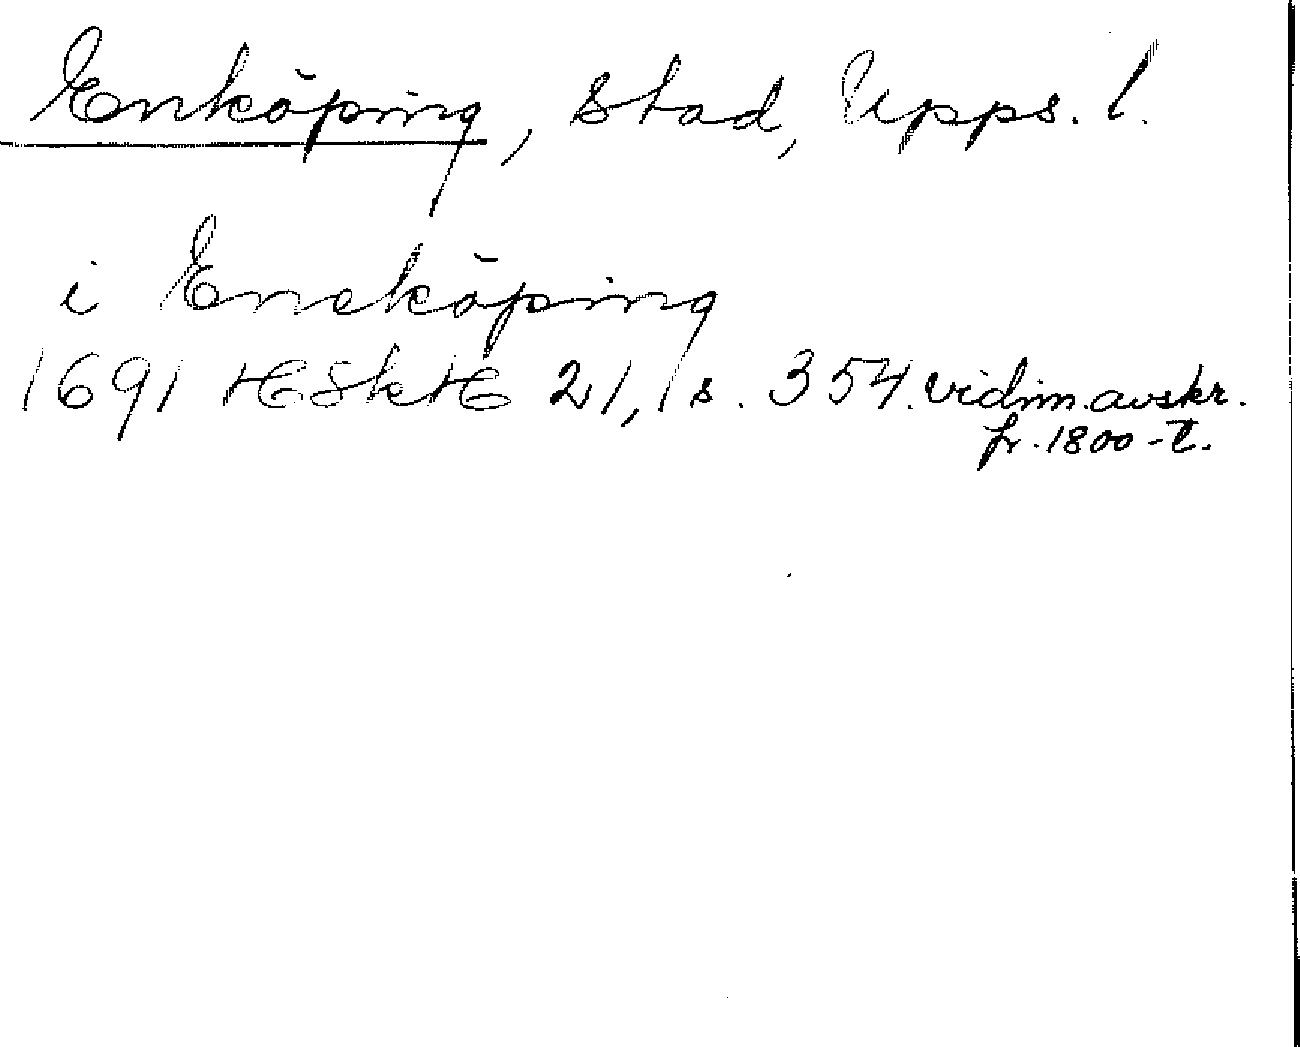 Enköping, stad, Upps. l.
i Eneköping
1691 HSkH 21, s. 354. vidim. avskr.
fr. 1800-t.